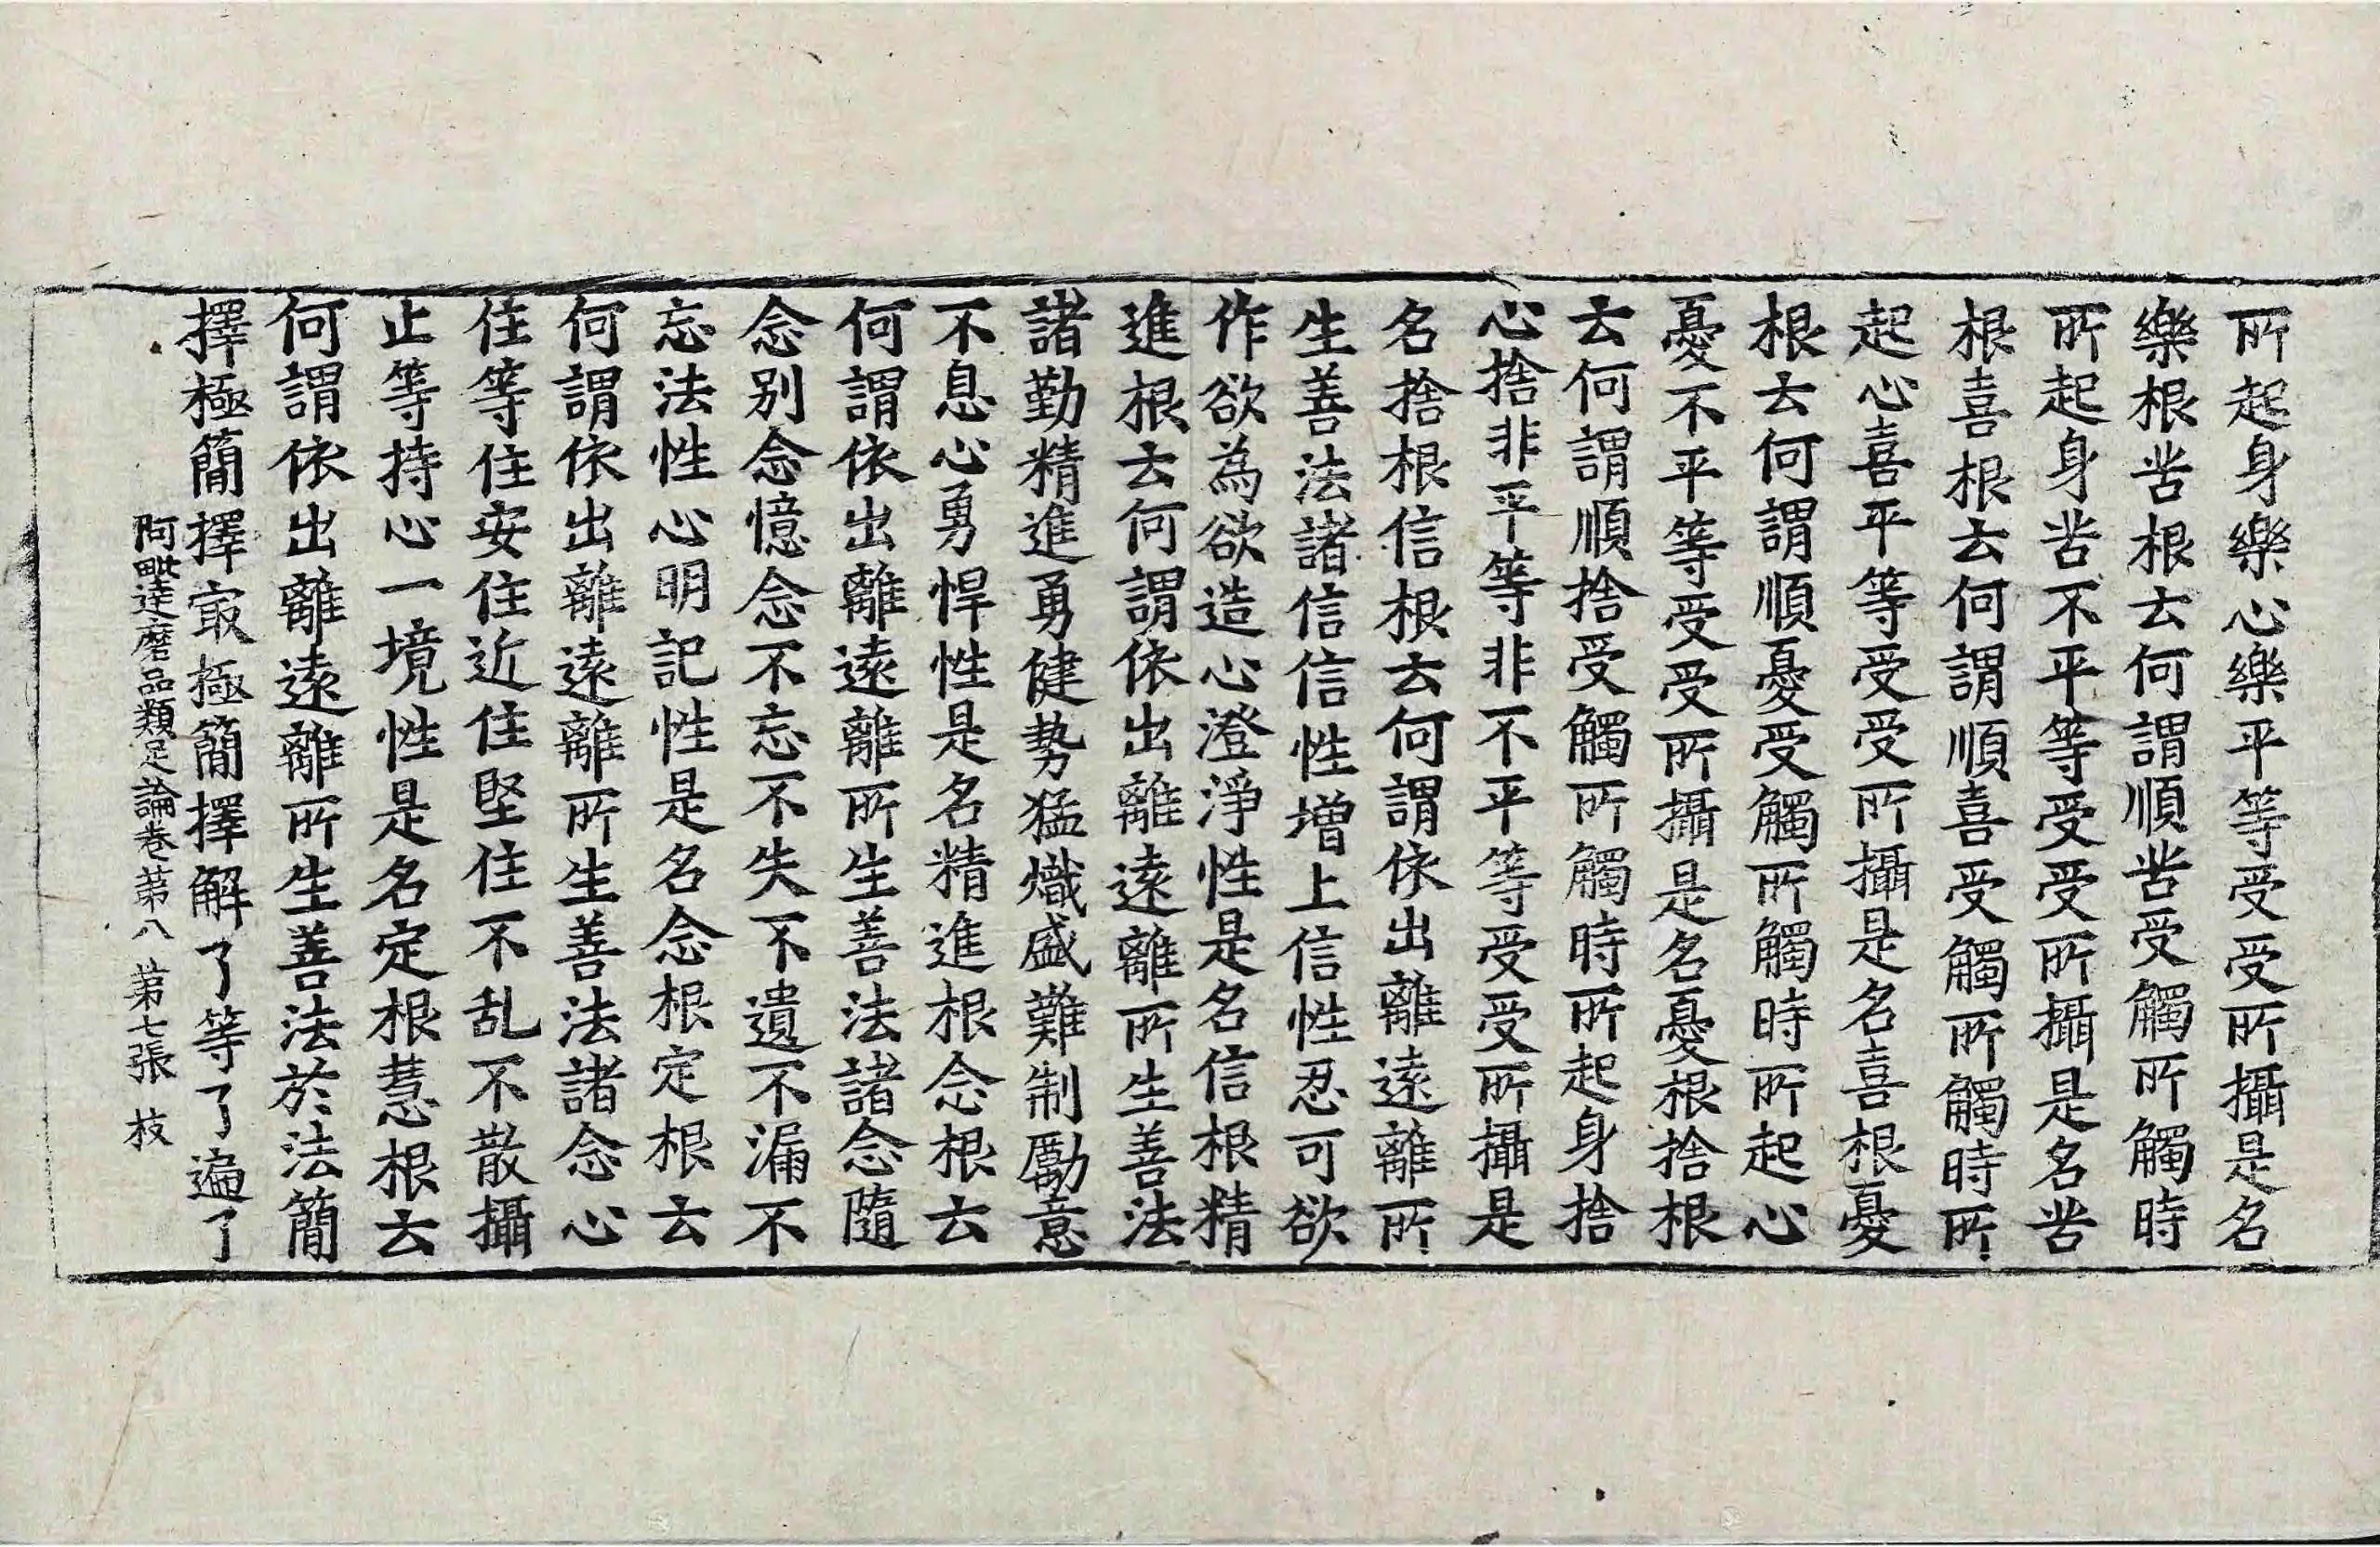 所起身樂心樂平等受受所攝是名
樂根苦根云何謂順苦受觸所觸時
所起身苦不平等受受所攝是名苦
根喜根云何謂順喜受觸所觸時所
起心喜平等受受所攝是名喜根憂
根云何謂順憂受觸所觸時所起心
憂不平等受受所攝是名憂根捨根
云何謂順捨受觸所觸時所起身捨
心捨非平等非不平等受受所攝是
名捨根信根云何謂依出離遠離所
生善法諸信信性增上信性忍可欲
作欲為欲造心澄淨性是名信根精
進根云何謂依出離遠離所生善法
諸勤精進勇健勢猛熾盛難制勵意
不息心勇悍性是名精進根念根云
何謂依出離遠離所生善法諸念隨
念別念憶念不忘不失不遺不漏不
忘法性心明記性是名念根定根云
何謂依出離遠離所生善法諸念心
住等住安住近住堅住不乱不散攝
止等持心一境性是名定根慧根云
何謂依出離遠離所生善法於法簡
擇極簡擇㝡極簡擇解了等了遍了
阿毗達磨品類足論卷第八 第七張 枝